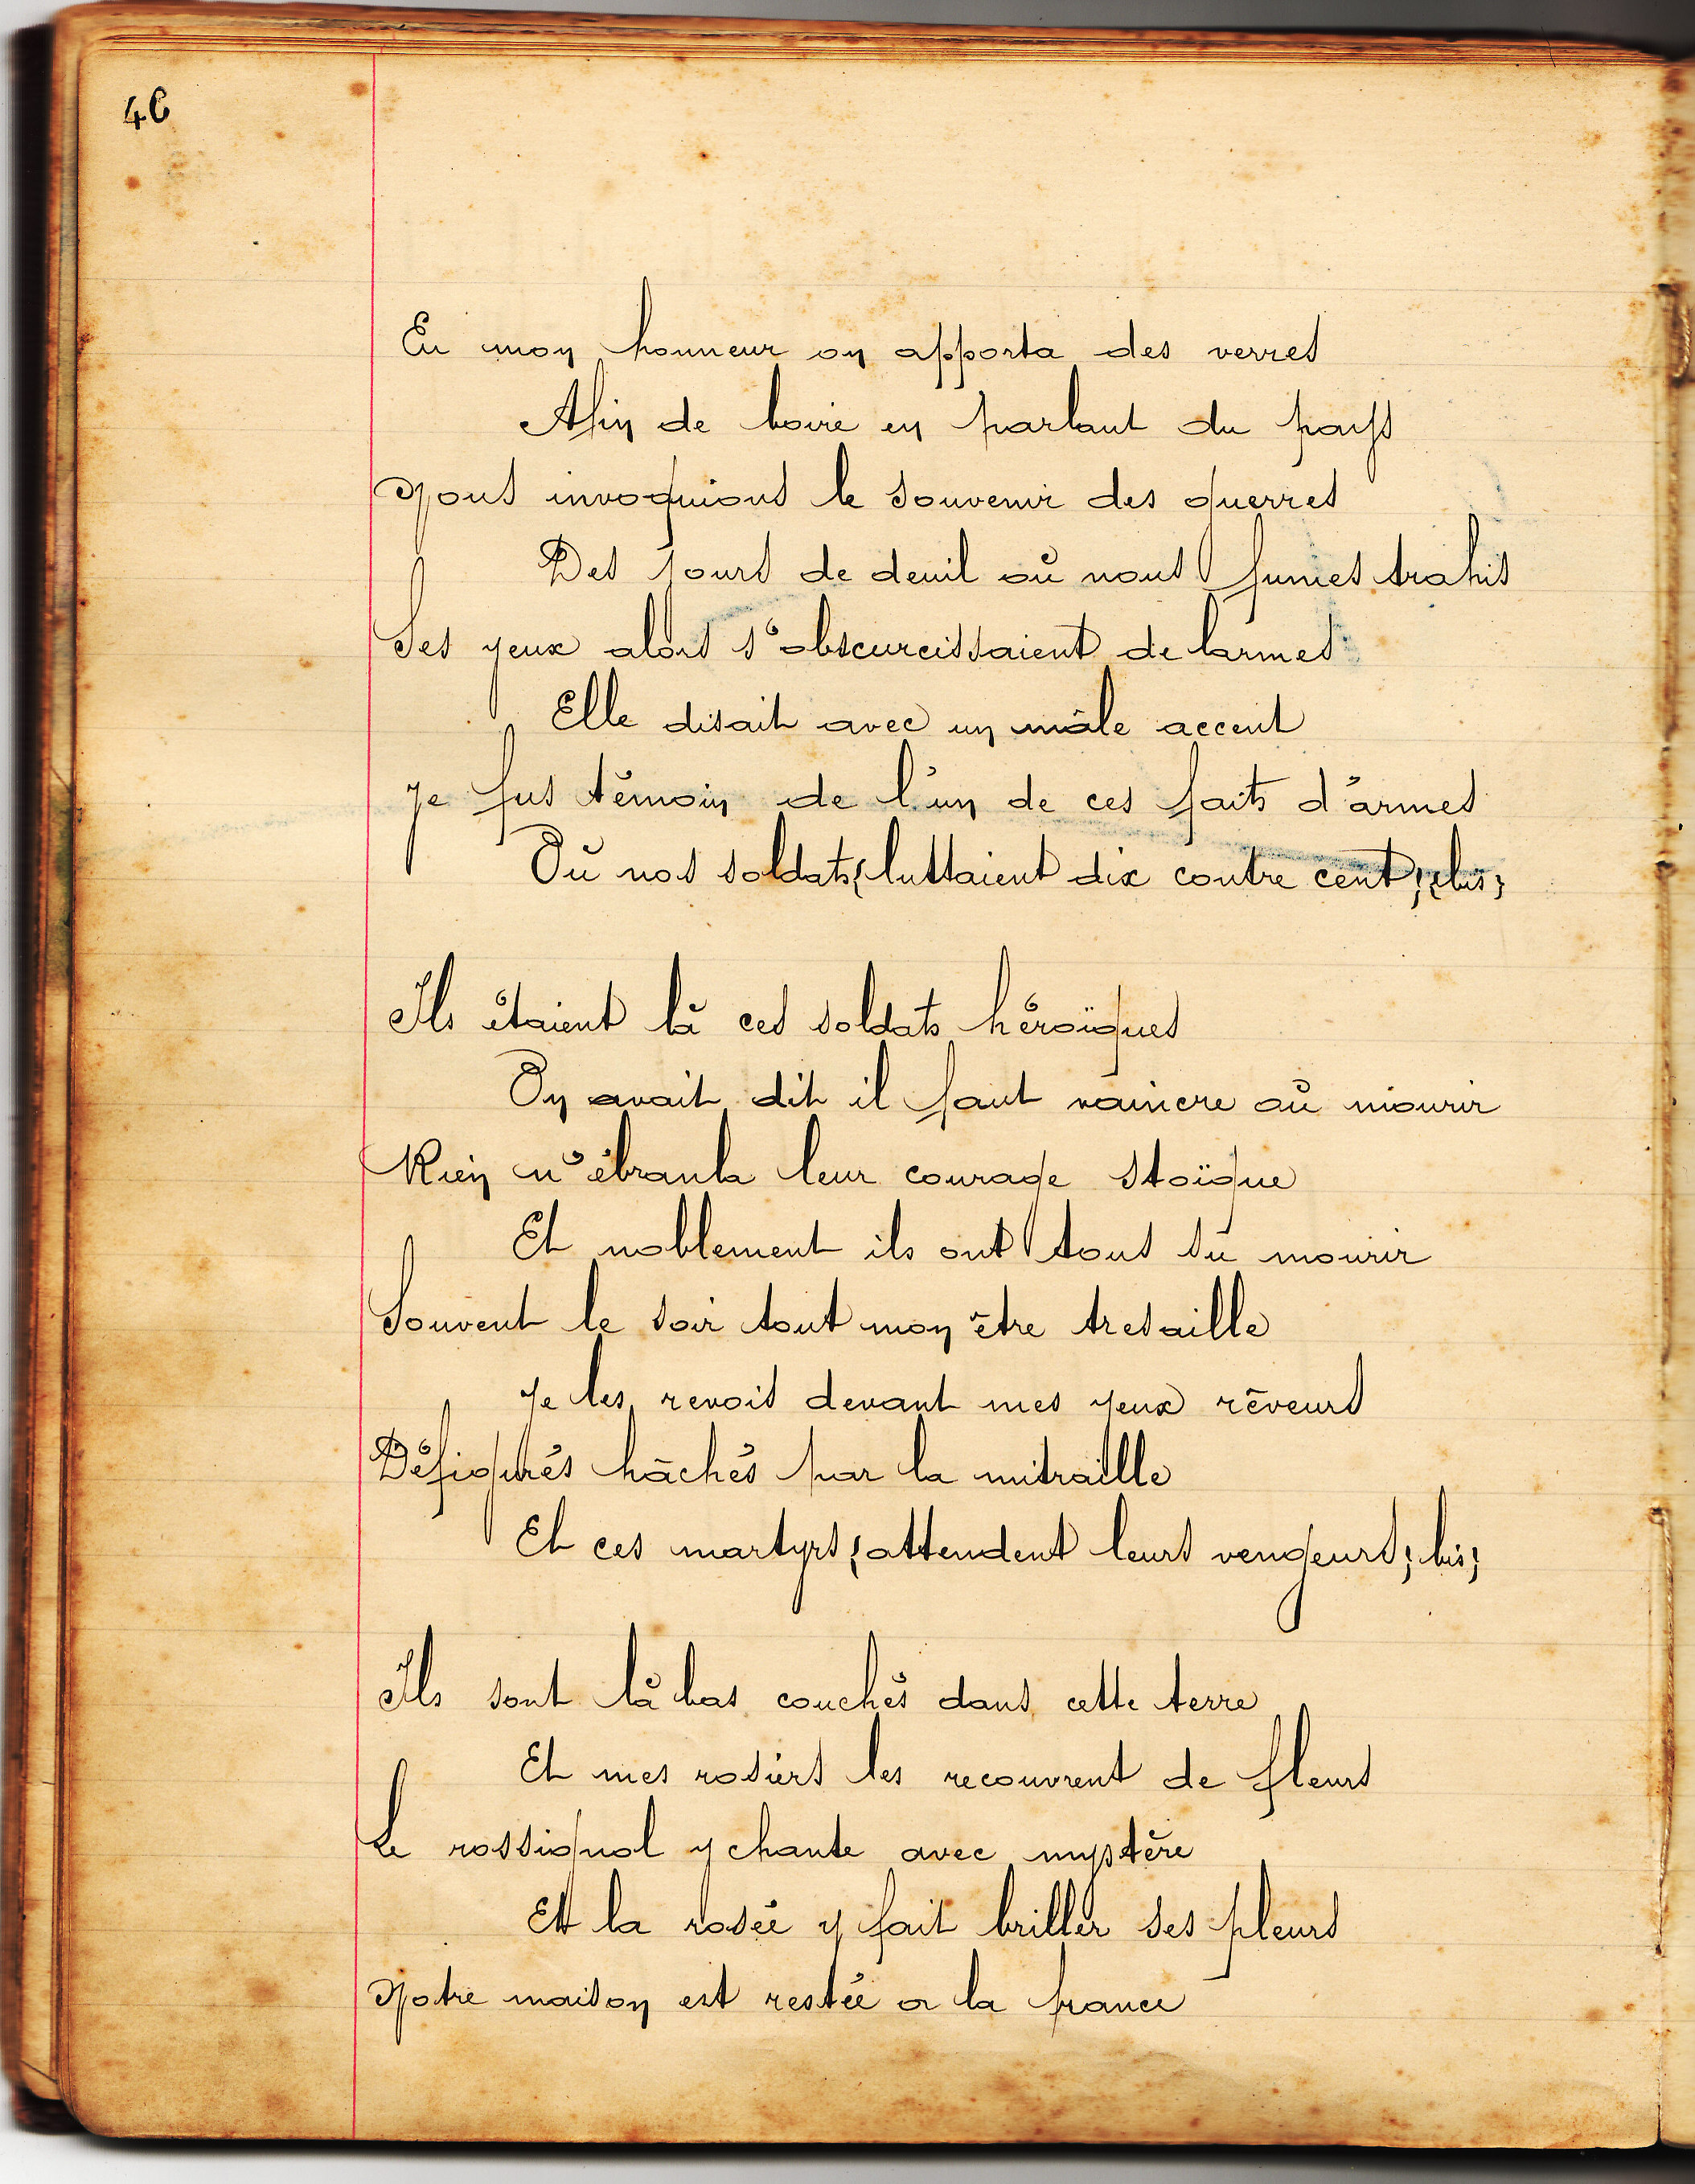 46
En mon honneur on apporta des verres
Afin de boire en parlant du pays
Nous invoquions le souvenir des guerres
Des jours de deuil où nous fumes trahis
Ses yeux alors s'obscurcissaient de larmes
Elle disait avec un mâle accent
Je fus témoin de l'un de ces faits d'armes
Où nos soldats (luttaient dix contre cent ; (bis ;
Ils étaient là ces soldats héroïques
On avait dit il faut vaincre où mourir
Rien n'ébranla leur courage stoïque
Et noblement ils ont tous su mourir
Souvent le soir tout mon être tresaille
Je les revois devant mes yeux rêveurs
Défigurés hâchés par la mitraille
Et ces martyrs (attendent leurs vengeurs ; bis ;
Ils sont là bas couchés dans cette terre
Et mes rosiers les recouvrent de fleurs
Le rossignol y chante avec mystère
Et la rosée y fait briller ses pleurs
Notre maison est restée a la france